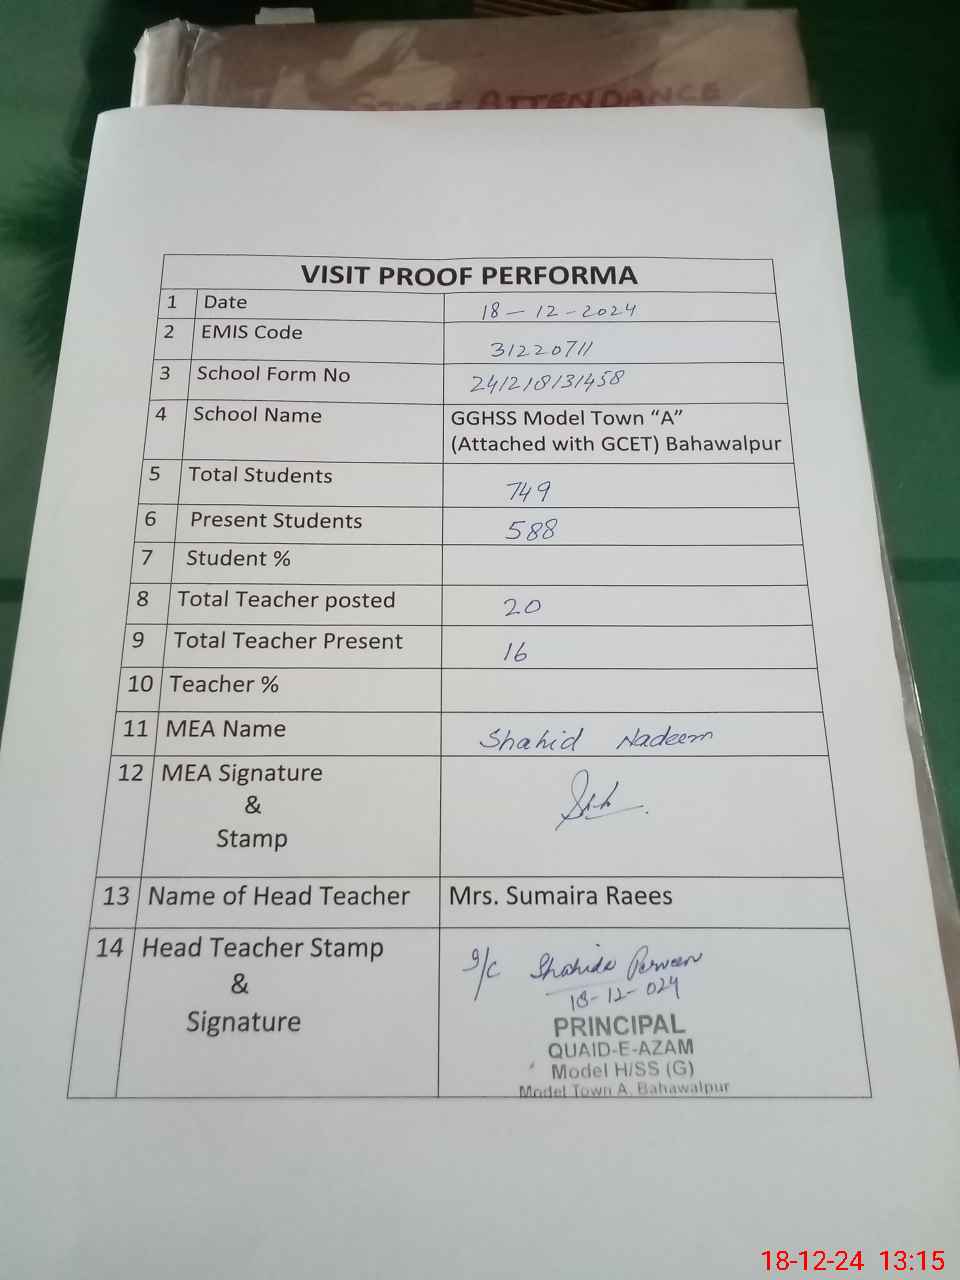 STAFF ATTENDANCE
VISIT PROOF PERFORMA
1 Date 18-12-2024
2 EMIS Code 31220711
3 School Form No 241218131458
4 School Name GGHSS Model Town “A”
(Attached with GCET) Bahawalpur
5 Total Students 749
6 Present Students 588
7 Student %
8 Total Teacher posted 20
9 Total Teacher Present 16
10 Teacher %
11 MEA Name Shahid Nadeem
12 MEA Signature
&
Stamp
13 Name of Head Teacher Mrs. Sumaira Raees
14 Head Teacher Stamp I/C Shahida Parveen
& 18-12-024
Signature
PRINCIPAL
QUAID-E-AZAM
Model H/SS (G)
Model Town A, Bahawalpur
18-12-24 13:15